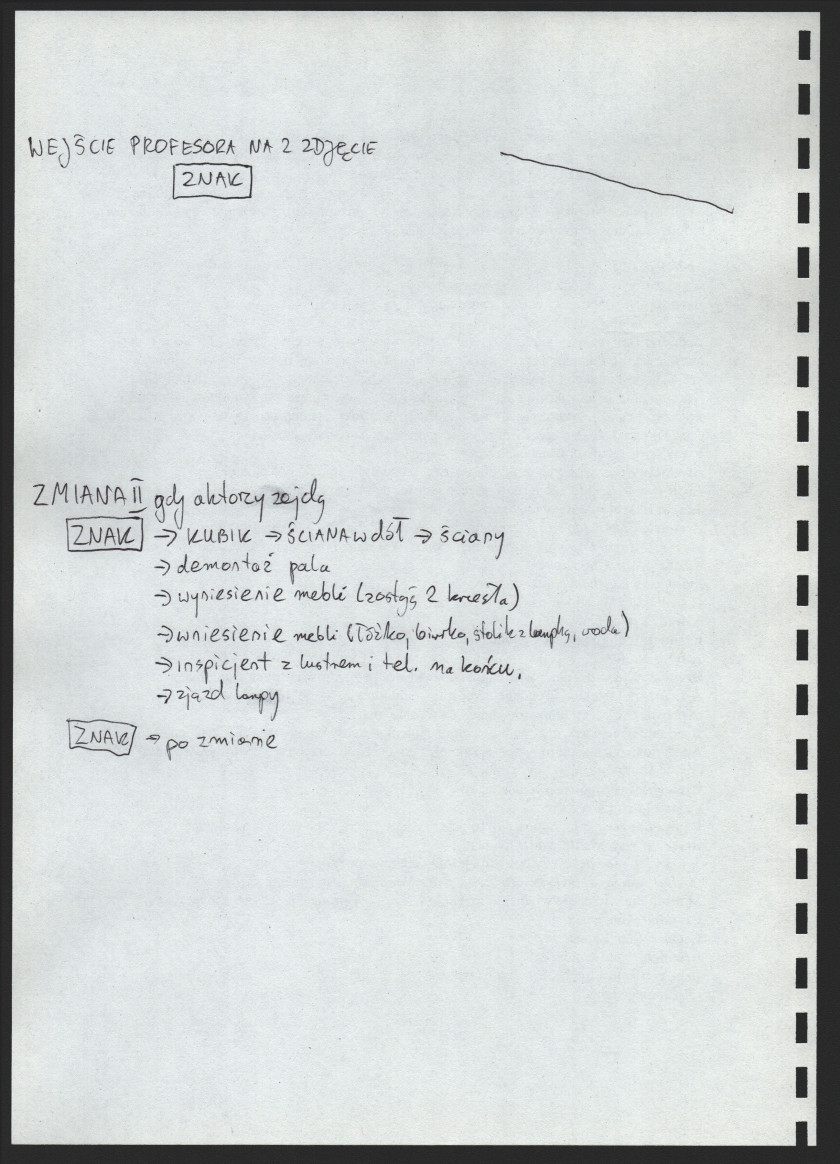 WEJŚCIE PROFESORA NA 2 ZDJĘCIE
ZNAK
ZMIANA II gdy aktorzy zejdą
ZNAK → KUBIK → ŚCIANA w dół → ściany
→ demontaż pala
→ wyniesienie mebli (zostają 2 krzesła)
→ wniesienie mebli (łóżko, biurko, stolik z lampką, woda)
→ inspicjent z lustrem i tel. na końcu.
→ zjazd lampy
ZNAK → po zmianie